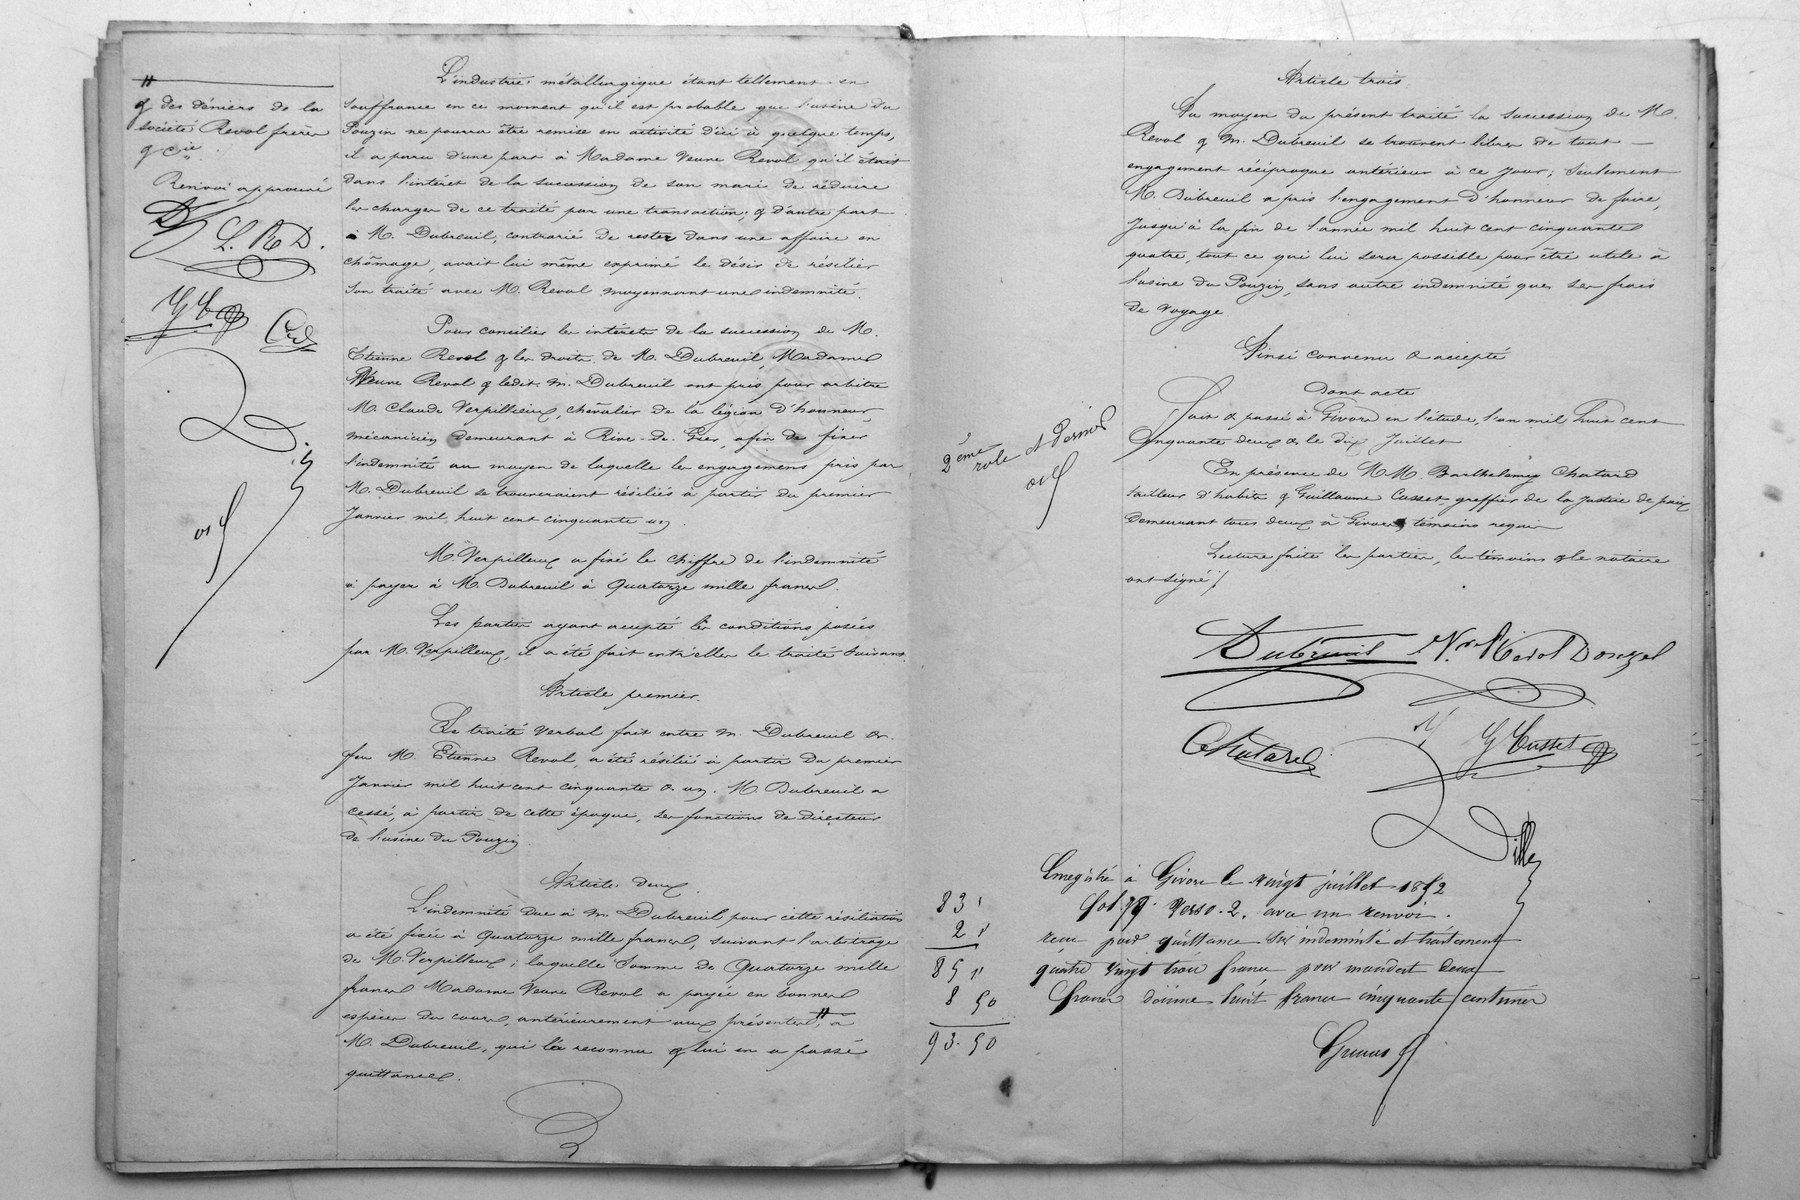 & des déniers de la
société Revol frères
& Cie.
Renvoi approuvé
L. R D.
L'industrie métallurgique étant tellement en
souffrance en ce moment qu'il est probable que l'usine du
Pouzin ne pourra être remise en activité d'ici à quelque temps,
il a paru d'une part à Madame Veuve Revol qu'il était
dans l'intérêt de la succession de son mari de réduire
les charges de ce traité par une transaction, & d'autre part
à M. Dubreuil, contrarié de rester dans une affaire en
chômage, avait lui même exprimé le désir de résilier
son traité avec M. Revol moyennant une indemnité.
Pour concilier les intérêts de la succession de M.
Etienne Revol & les droits de M. Dubreuil, Madame
Veuve Revol & ledit M. Dubreuil ont pris pour arbitre
M. Claude Verpilleux, chevalier de la légion d'honneur,
mécanicien demeurant à Rive-de-Gier, afin de fixer
l'indemnité au moyen de laquelle les engagemens pris par
M. Dubreuil se trouveraient résiliés à partir du premier
Janvier mil huit cent cinquante un.
M. Verpilleux a fixé le chiffre de l'indemnité
à payer à M. Dubreuil à Quatorze mille francs.
Les parties ayant accepté les conditions posées
par M. Verpilleux, il a été fait entr'elles le traité suivant.
Article premier.
Le traité verbal fait entre M. Dubreuil &
feu M. Etienne Revol, a été résilié à partir du premier
Janvier mil huit cent cinquante & un. M. Dubreuil a
cessé, à partir de cette époque, ses fonctions de directeur
de l'usine du Pouzin.
Article deux.
L'indemnité due à M. Dubreuil pour cette résiliation
a été fixée à Quatorze mille francs, suivant l'arbitrage
de M. Verpilleux; laquelle somme de Quatorze mille
francs Madame Veuve Revol a payée en bonnes
espèces du cours, antérieurement aux présentes, à
M. Dubreuil, qui l'a reconnu & lui en a passé
quittance.
2ème rôle et dernier
Article trois.
Au moyen du présent traité la succession de M.
Revol & M. Dubreuil se trouvent libres de tout
engagement réciproque antérieur à ce jour; seulement
M. Dubreuil a pris l'engagement d'honneur de faire,
jusqu'à la fin de l'année mil huit cent cinquante
quatre, tout ce qui lui sera possible pour être utile à
l'usine du Pouzin, sans autre indemnité que ses frais
de voyage
Ainsi convenu & accepté
Dont acte
Fait & passé à Givors en l'étude, l'an mil huit cent
Cinquante deux & le dix Juillet
En présence de M.M. Barthélemy Chatard
tailleur d'habits & Guillaume Cusset greffier de la justice de paix
demeurant tous deux à Givors témoins requis
Lecture faite les parties, les témoins & le notaire
ont signé /
Dubreuil Ve Revol Donzel
Chatard G Cusset
Enregistré à Givors le vingt juillet 1852
fol. 79 Verso. 2. avec un renvoi.
83 "
reçu pour quittance sur indemnité et traitement
2 "
quatre vingt trois francs pour mandat deux
85 "
francs dixième huit francs cinquante centimes
8 50
93.50